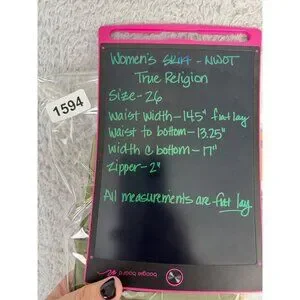 Women's Skirt - NWOT
True Religion
Size - 26
Waist width - 14.5" flat lay
Waist to bottom - 13.25"
Width @ bottom - 17"
Zipper - 2"
All measurements are flat lay
1594
boogie board